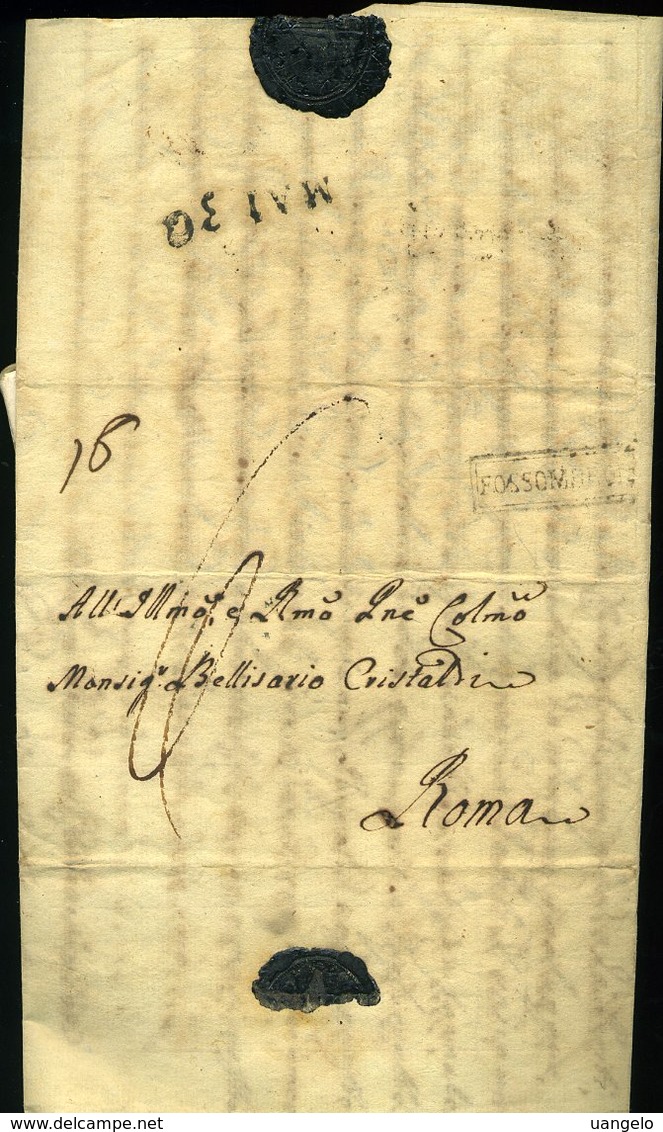 MAI 30
16
FOSSOMBRONE
All' Illmo, e Rmo Pne Colmo
Monsigr. Bellisario Cristaldi
Roma
delcampe.net
uangelo